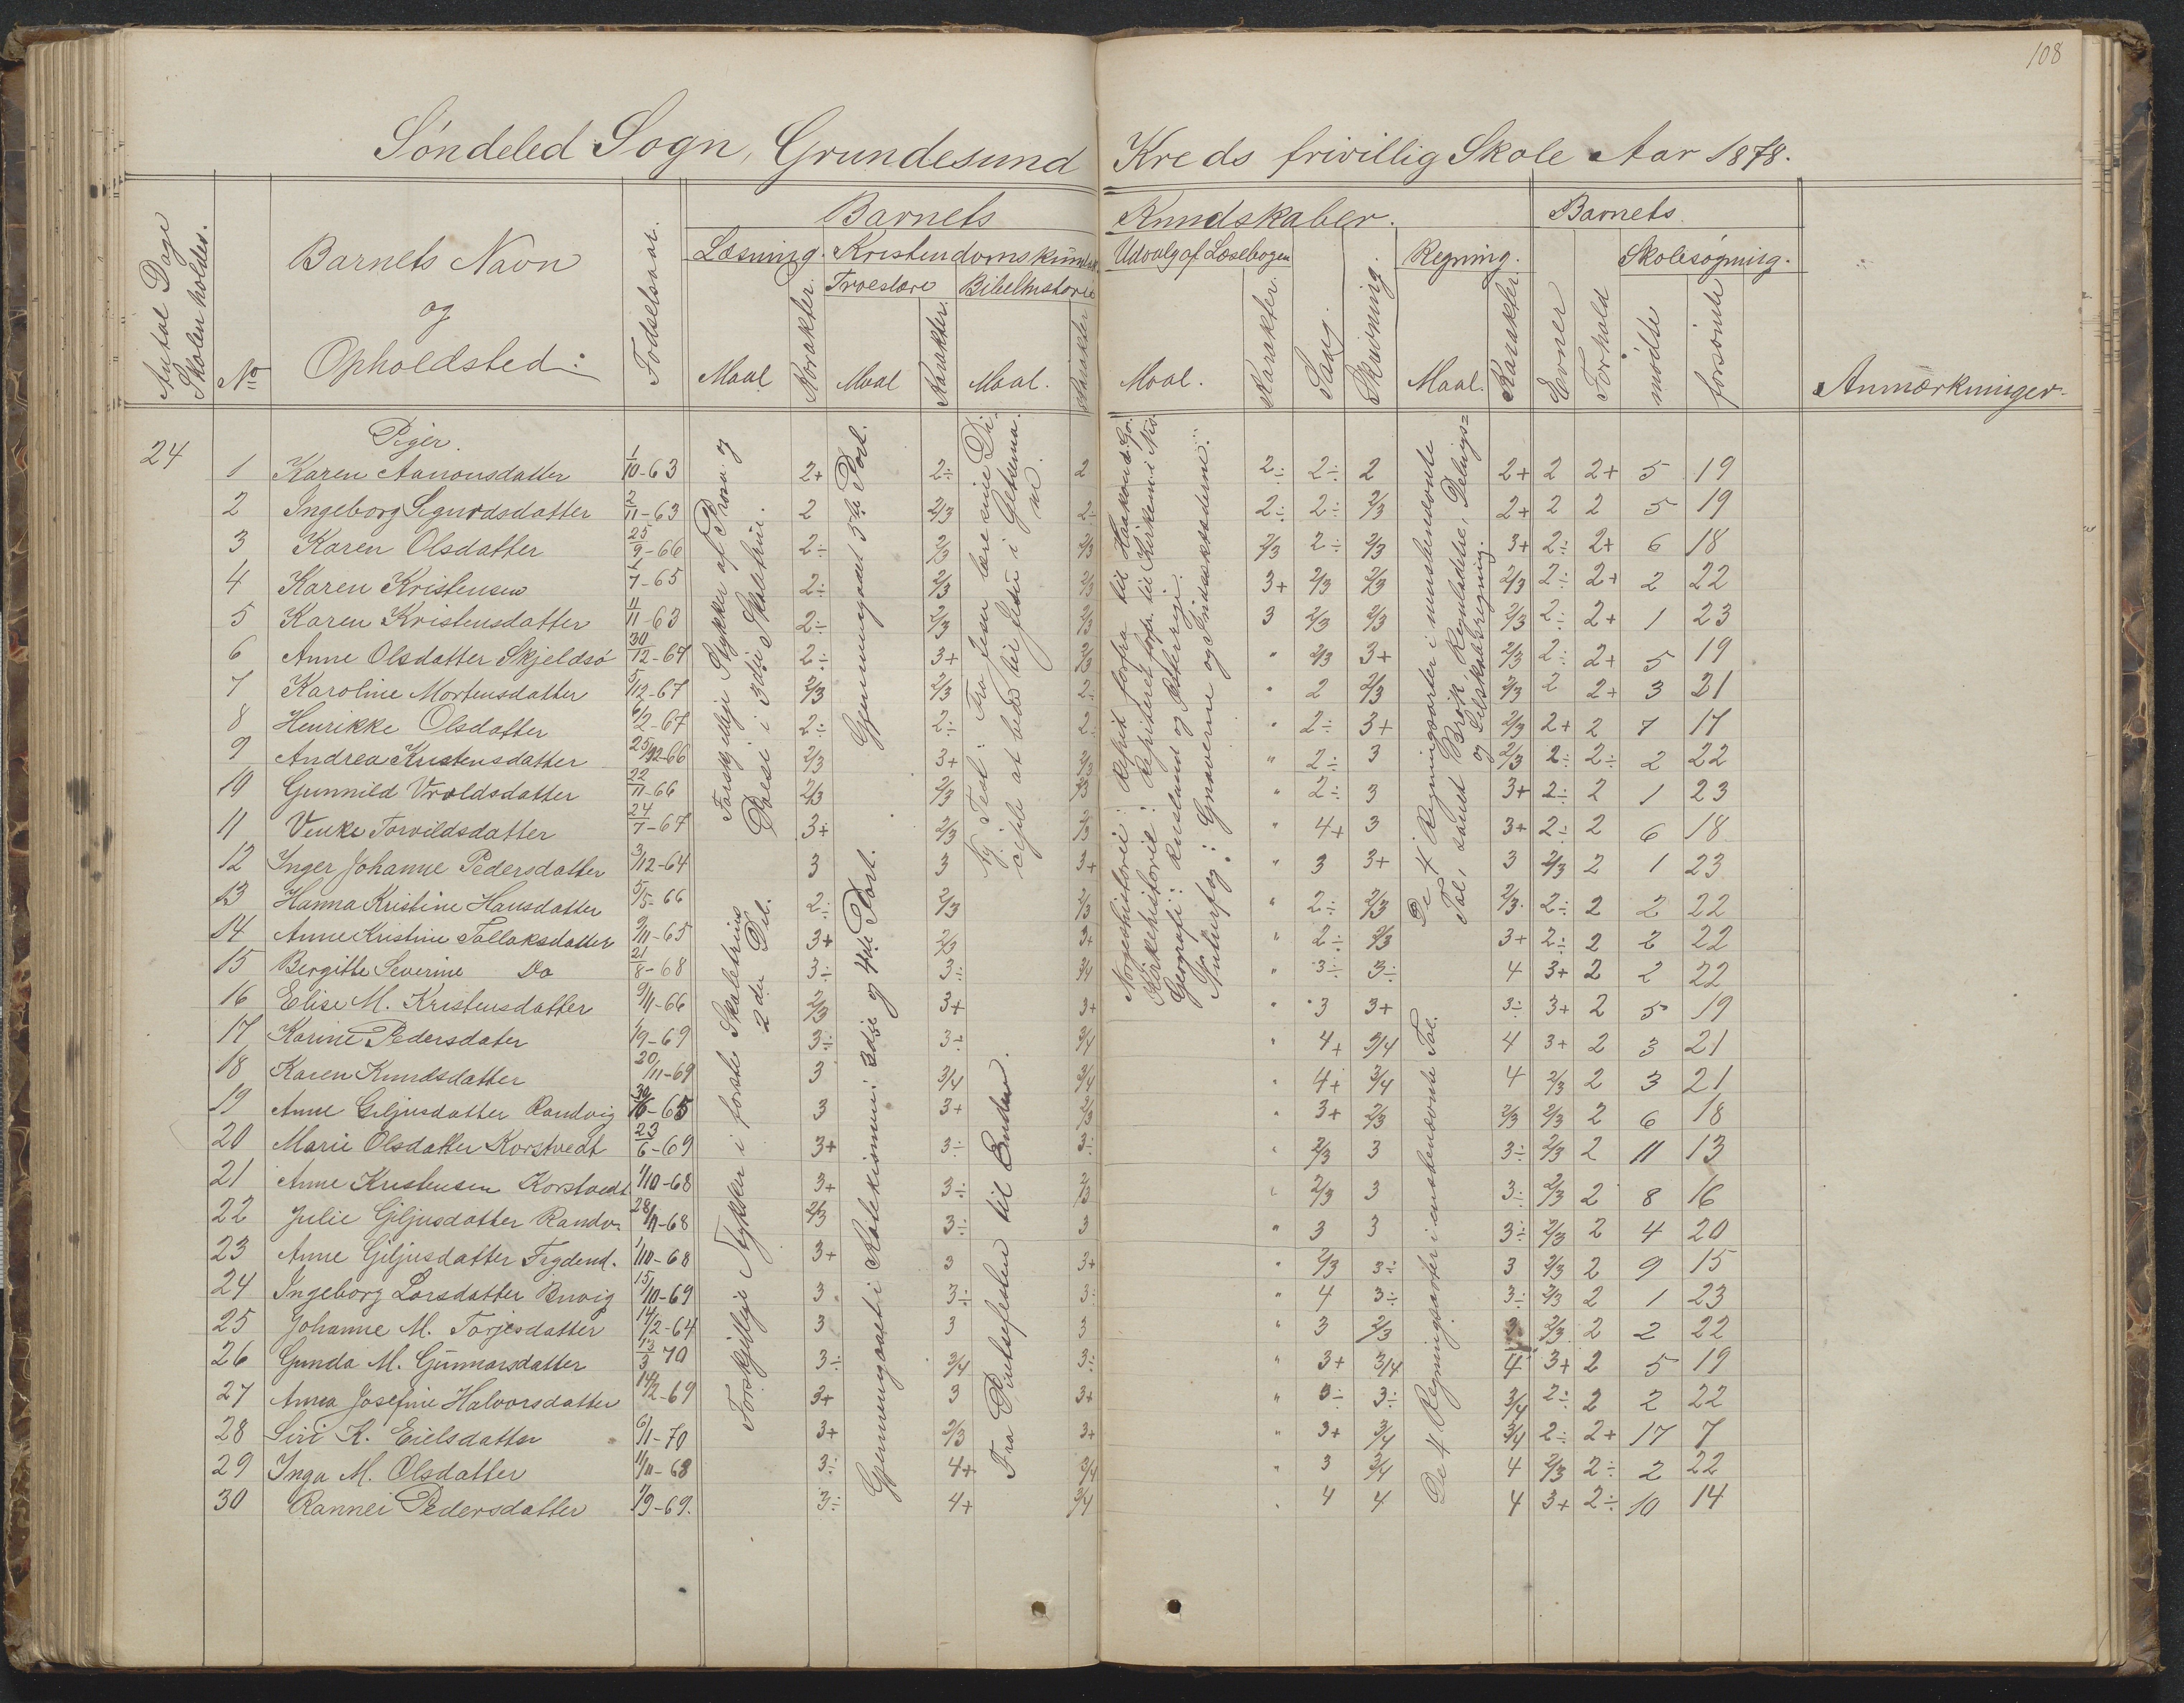 108
Söndeled Sogn, Grundesund Kreds frivillig Skole Aar 1878.
Antal Dage Skolen holdes.
No
Barnets Navn
og
Opholdsted:
Födselsaar.
Barnets Kundskaber.
Barnets
Læsning. Kristendomskundsk. Udvalg af Læsebogen Regning. Skolesøgning.
Troeslære Bibelhistorie
Maal Karakter. Maal Karakter. Maal. Karakter Maal. Karakter. Sang. Skrivning. Maal. Karakter. Evner Forhold mødte forsömte Anmærkninger
24
Piger.
1 Karen Aanonsdatter 1/10-63 2+ 2÷ 2 2÷ 2÷ 2 2+ 2 2+ 5 19
2 Ingeborg Sigurdsdatter 2/11-63 2 2/3 2÷ 2÷ 2÷ 2/3 2+ 2 2 5 19
3 Karen Olsdatter 25/9-66 2÷ 2/3 2/3 2/3 2÷ 2/3 3+ 2÷ 2+ 6 18
4 Karen Kristensen 1/7-65 2÷ 2/3 2/3 3+ 2/3 2/3 2/3 2÷ 2+ 2 22
5 Karen Kristensdatter 4/11-63 2÷ 2/3 2/3 3 2/3 2/3 2/3 2÷ 2+ 1 23
6 Anne Olsdatter Skjeldsö 30/12-67 2÷ 3+ 2/3 " 2/3 3+ 2/3 2÷ 2+ 5 19
7 Karoline Mortensdatter 5/12-67 2/3 2/3 2÷ " 2 2/3 2/3 2 2+ 3 21
8 Henrikke Olsdatter 6/2-67 2÷ 2÷ 2 " 2÷ 3+ 2/3 2+ 2 7 17
9 Andrea Kristensdatter 25/12-66 2/3 3+ 2/3 " 2÷ 3 2/3 2÷ 2÷ 2 22
10 Gunnild Vroldsdatter 22/11-66 2/3 2/3 2/3 " 2÷ 3 3+ 2÷ 2 1 23
11 Venke Torvildsdatter 24/7-67 3+ 2/3 2/3 " 4+ 3 3+ 2÷ 2 6 18
12 Inger Johanne Pedersdatter 3/12-64 3 3 3+ " 3 3+ 3 2/3 2 1 23
13 Hanna Kristine Hansdatter 5/5-66 2÷ 2/3 2/3 " 2÷ 2/3 2/3 2÷ 2 2 22
14 Anne Kristine Tallaksdatter 9/11-65 3+ 2/3 3+ " 2÷ 2/3 3+ 2÷ 2 2 22
15 Bergitte Severine Do 21/8-68 3÷ 3÷ 3/4 " 3÷ 3÷ 4 3+ 2 2 22
16 Elise M. Kristensdatter 9/11-66 2/3 3+ 3+ " 3 3+ 3÷ 3+ 2 5 19
17 Karine Pedersdater 1/9-69 3÷ 3÷ 3/4 " 4+ 3/4 4 3+ 2 3 21
18 Karen Knudsdatter 20/11-69 3 3/4 3/4 " 4+ 3/4 4 2/3 2 3 21
19 Anne Giljusdatter Randvig 30/6-65 3 3+ 2/3 " 3+ 2/3 2/3 2/3 2 6 18
20 Marie Olsdatter Korstvedt 23/6-69 3+ 3÷ 3÷ " 2/3 3 3÷ 2/3 2 11 13
21 Anne Kristensen Korstvedt 1/10-68 3+ 3÷ 2/3 " 2/3 3 3÷ 2/3 2 8 16
22 Julie Giljusdatter Randv. 28/11-68 2/3 3÷ 3 " 3 3 3÷ 2/3 2 4 20
23 Anne Giljusdatter 1/10-68 3+ 3 3+ " 2/3 3÷ 3 2/3 2 9 15
24 Ingeborg Larsdatter Buvig 15/10-69 3 3÷ 3÷ " 4 3÷ 3÷ 2/3 2 1 23
25 Johanne M. Torjesdatter 14/2-64 3 3 3 " 3 2/3 3 2/3 2 2 22
26 Gunda M. Gunnarsdatter 13/3 70 3÷ 3/4 3÷ " 3+ 3/4 4 3+ 2 5 19
27 Anna Josefine Halvorsdatter 14/2-69 3+ 3 3+ " 3÷ 3÷ 3/4 2÷ 2 2 22
28 Siri K. Eielsdatter 6/1-70 3+ 2/3 3+ " 3+ 3/4 3/4 2÷ 2+ 17 7
29 Inga M. Olsdatter 11/11-68 3÷ 4+ 3/4 " 3 3/4 4 2/3 2÷ 2 22
30 Rannei Pedersdatter 1/9-69. 3÷ 4+ 3/4 4 4 4 3+ 2÷ 10 14
Forskjellige Stykker af Prosa og
Poesi i 3die Skoletrin.
Forskjellige Stykker i første Skoletrins
2den Del.
Gjennemgaaet 5te Part.
Gjennemgaaet i Katekismen: 3die og 4de Part.
Ny Test: Fra Jesu lære sine Di-
ciple at bede til Jesu i Getsema-
ne.
Fra Pintsefesten til Enden.
Norgeshistorie: Repet. forfra til Haakon d. Go.
Kirkehistorie: Repeteret forfra til Kirken i
Geografi: Rusland og Østerrige.
Af Naturfag: Gnaverne og Insektæderne.
De 4 Regningsarter i ensbenævnte
Tal, samt Brøk, Reguladetri, Delings=
og Selskabsregning.
De 4 Regningsarter i ensbenævnte Tal.